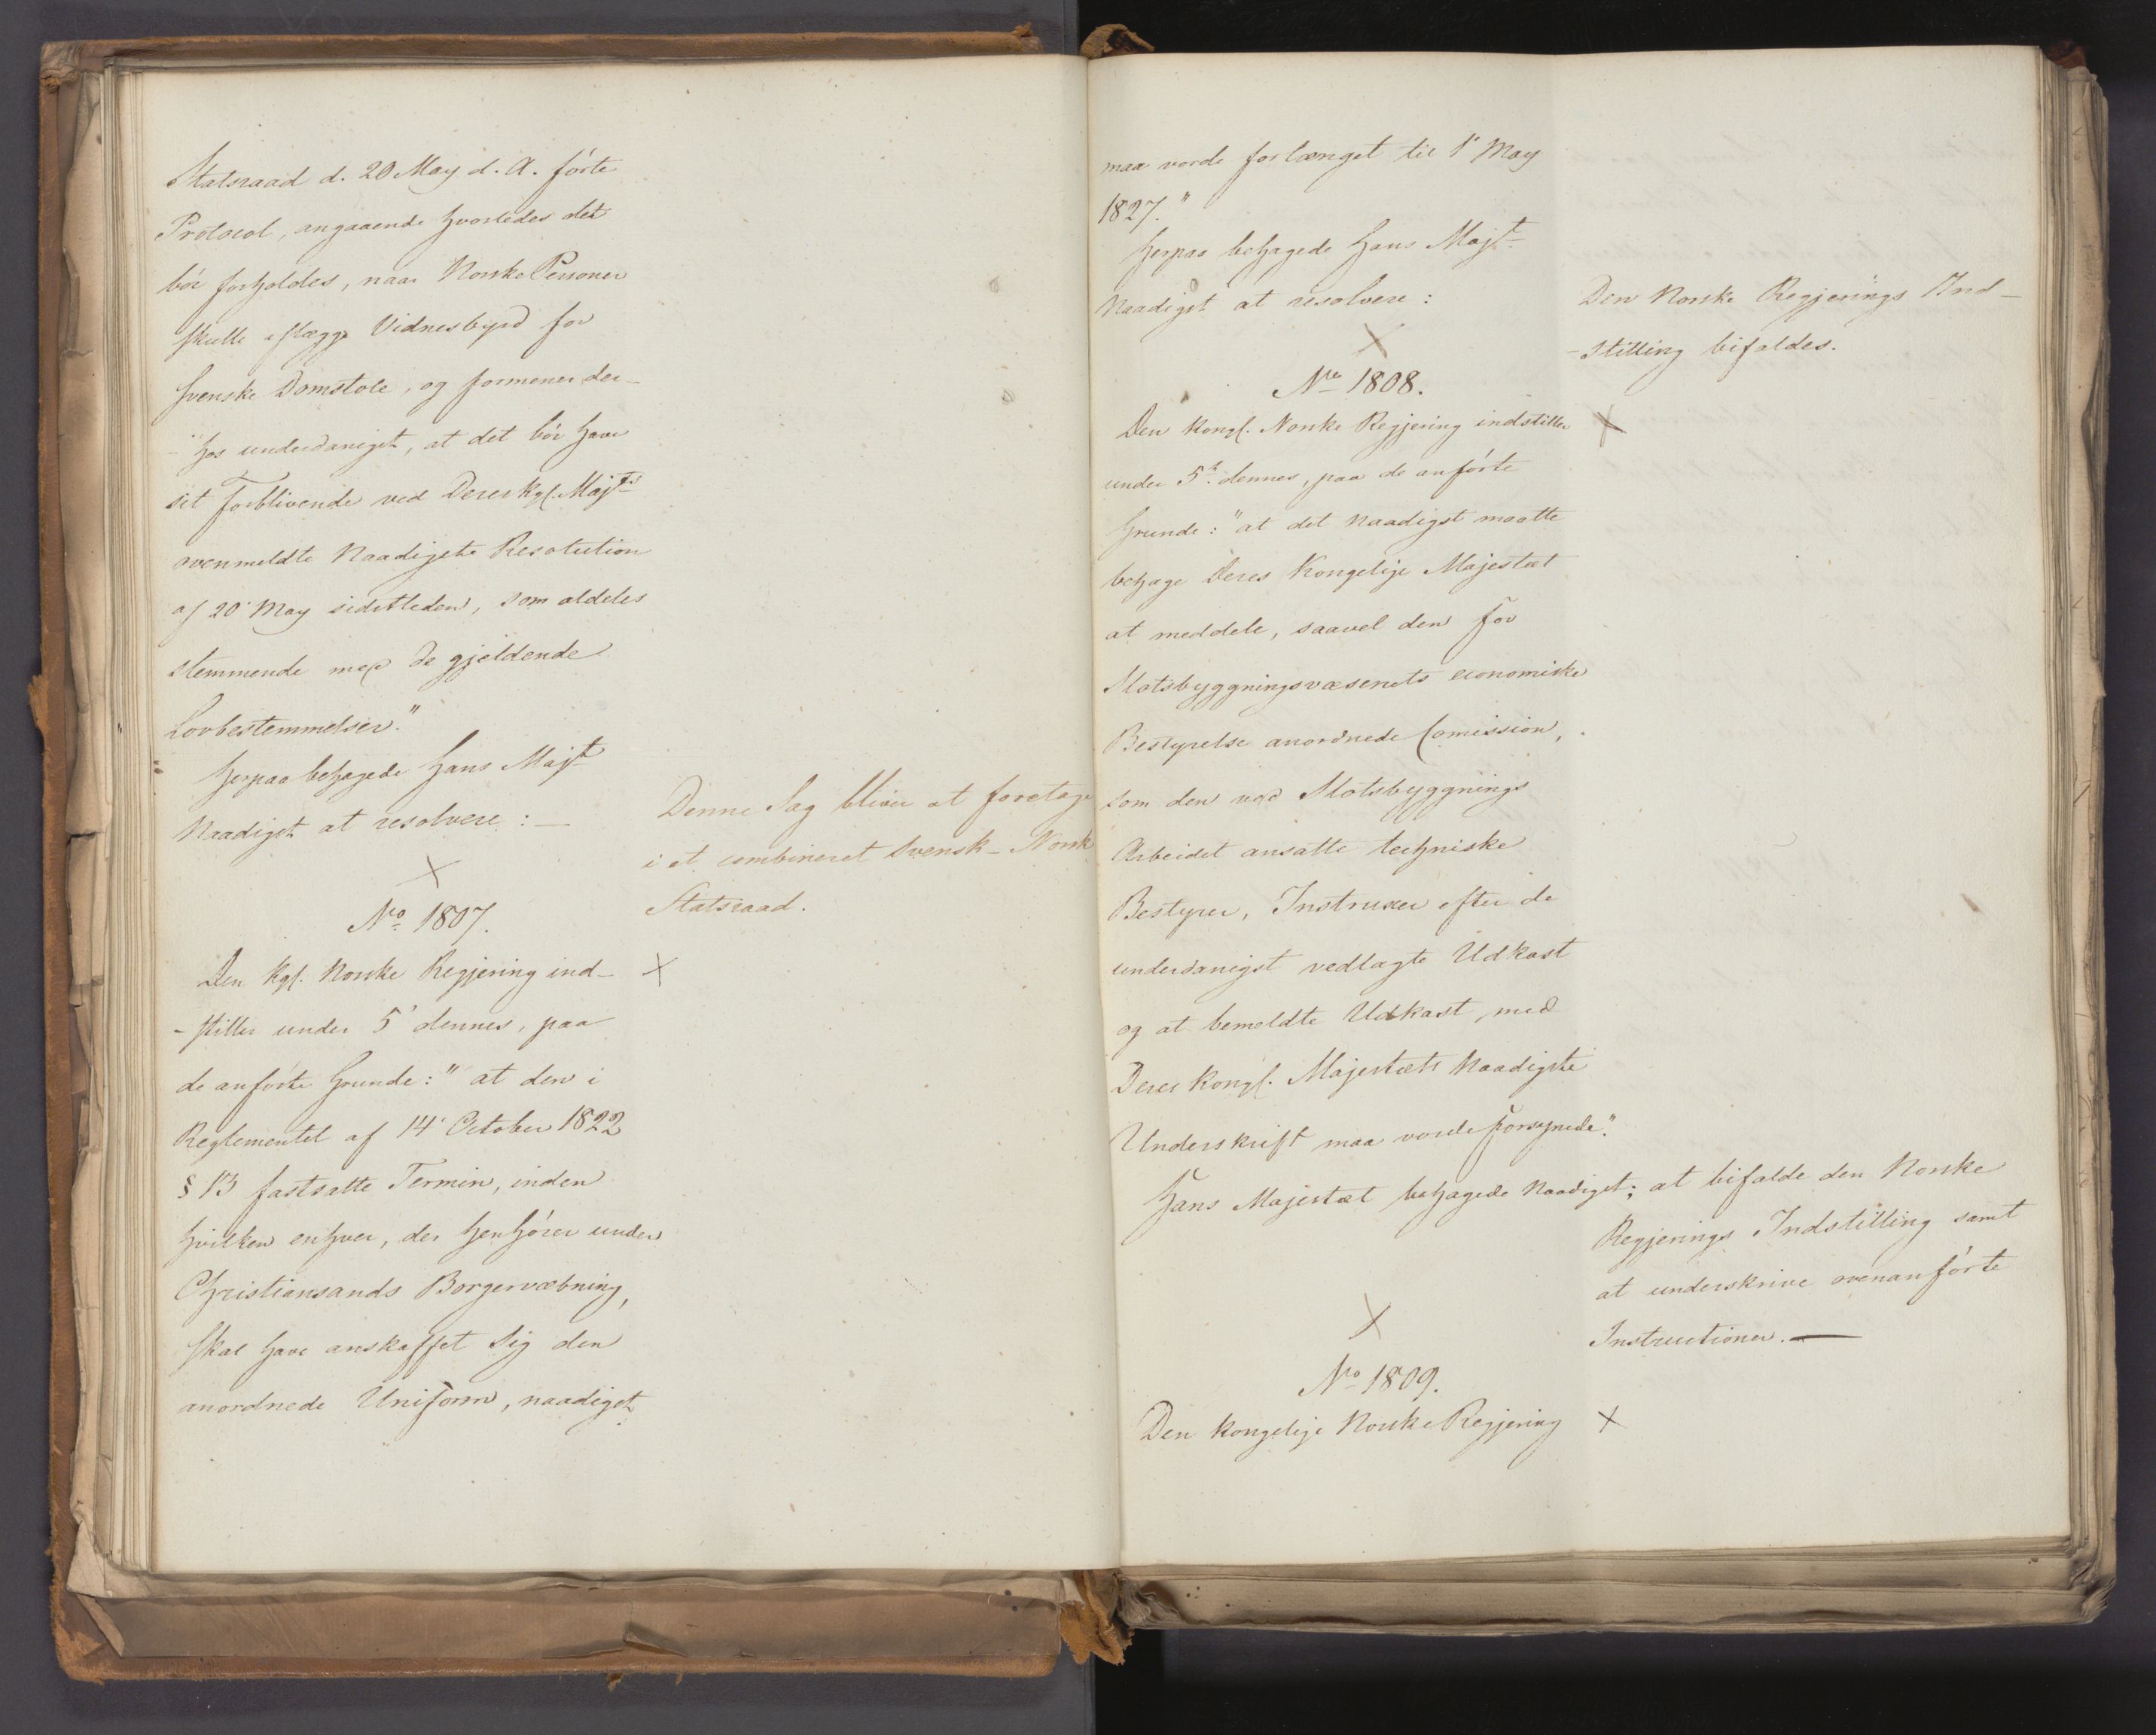 Statsraad d. 20 May d. A. førte
Protocol, angaaende hvorledes det
bör forholdes, naar Norske Personer
skulle aflægge Vidnesbyrd for
Svenske Domstole, og formener der-
hos underdanigst, at det bör have
sit Forblivende ved Deres Kgl. Majts
ovenmeldte Naadigste Resolution
af 20' May sidstleden, som aldeles
stemmende med de gjeldende
Lovbestemmelser."
Herpaa behagede Hans Majt
Naadigst at resolvere: —
Denne Sag bliver at foretage
i et combineret Svensk-Norsk
Statsraad.
No 1807.
Den Kgl. Norske Regjering ind-
-stiller under 5' dennes, paa
de anførte Grunde: "at den i
Reglementet af 14' October 1822
§ 13 fastsatte Termin, inden
hvilken enhver, der henhörer under
Christiansands Borgervæbning,
skal have anskaffet sig den
anordnede Uniform, naadigst
maa vorde forlænget til 1' May
1827."
Herpaa behagede Hans Majt
Naadigst at resolvere:
Den Norske Regjerings Ind-
-stilling bifaldes.
No 1808.
Den Kongl. Norske Regjering indstiller
under 5' dennes, paa de anførte
Grunde: "at det Naadigst maatte
behage Deres Kongelige Majestæt
at meddele, saavel den for
Slotsbyggningsvæsenets economiske
Bestyrelse anordnede Comission,
som den ved Slotsbyggnings
Arbeidet ansatte techniske
Bestyrer, Instruxer efter de
underdanigst vedlagte Udkast
og at bemeldte Udkast, med
Deres Kongl. Majestæts Naadigste
Underskrift maa vorde forsynede."
Hans Majestæt behagede Naadigst; at bifalde den Norske
Regjerings Indstilling samt
at underskrive ovenanførte
Instructioner. —
No 1809.
Den Kongelige Norske Regjering